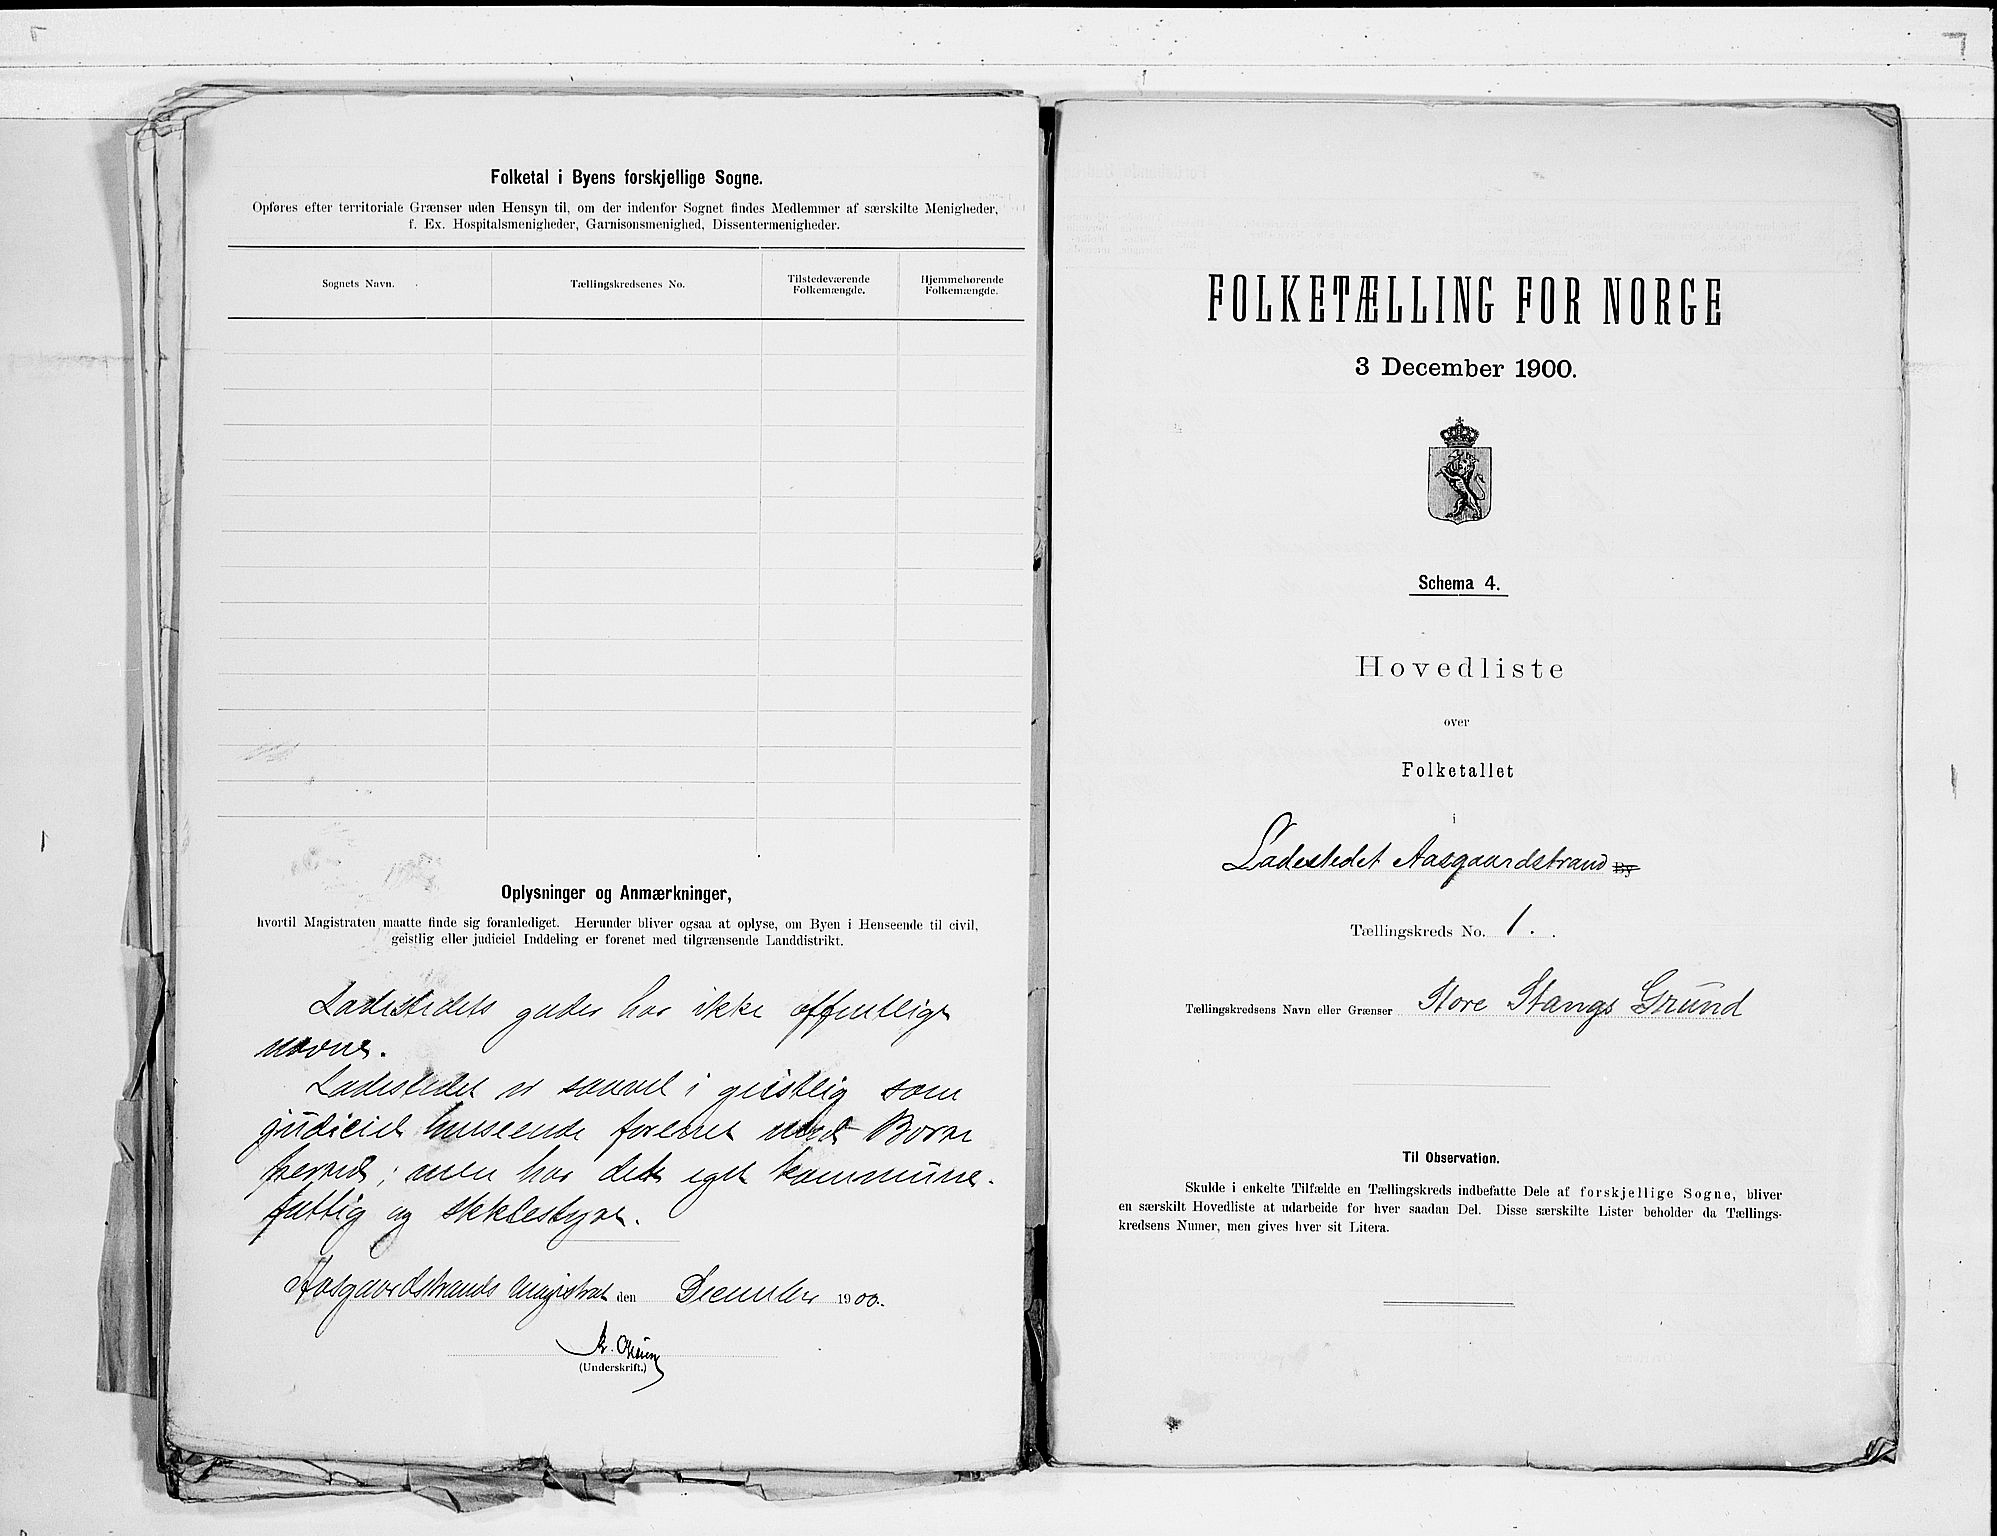 Folketal i Byens forskjellige Sogne.
Opføres efter territoriale Grænser uden Hensyn til, om der indenfor Sognet findes Medlemmer af særskilte Menigheder,
f. Ex. Hospitalsmenigheder, Garnisonsmenighed, Dissentermenigheder.
Sognets Navn.
Tællingskredsenes No.
Tilstedeværende
Folkemængde.
Hjemmehørende
Folkemængde.
Oplysninger og Anmærkninger,
hvortil Magistraten maatte finde sig foranlediget. Herunder bliver ogsaa at oplyse, om Byen i Henseende til civil,
geistlig eller judiciel Inddeling er forenet med tilgrænsende Landdistrikt.
Ladestedets gader har ikke offentlige
navne.
Ladestedet er saavel i geistlig som
judiciel henseende forenet med Borre
herred; men har dets eget kommune-
fattig og
Aasgaardstrands Magistrat den December 1900.
(Underskrift.)
FOLKETÆLLING FOR NORGE
3 December 1900.
Schema 4.
Hovedliste
over
Folketallet
i
Ladestedet Aasgaardstrand By
Tællingskreds No. 1.
Tællingskredsens Navn eller Grænser Store Stangs Grund
Til Observation.
Skulde i enkelte Tilfælde en Tællingskreds indbefatte Dele af forskjellige Sogne, bliver
en særskilt Hovedliste at udarbeide for hver saadan Del. Disse særskilte Lister beholder da Tællings-
kredsens Numer, men gives hver sit Litera.